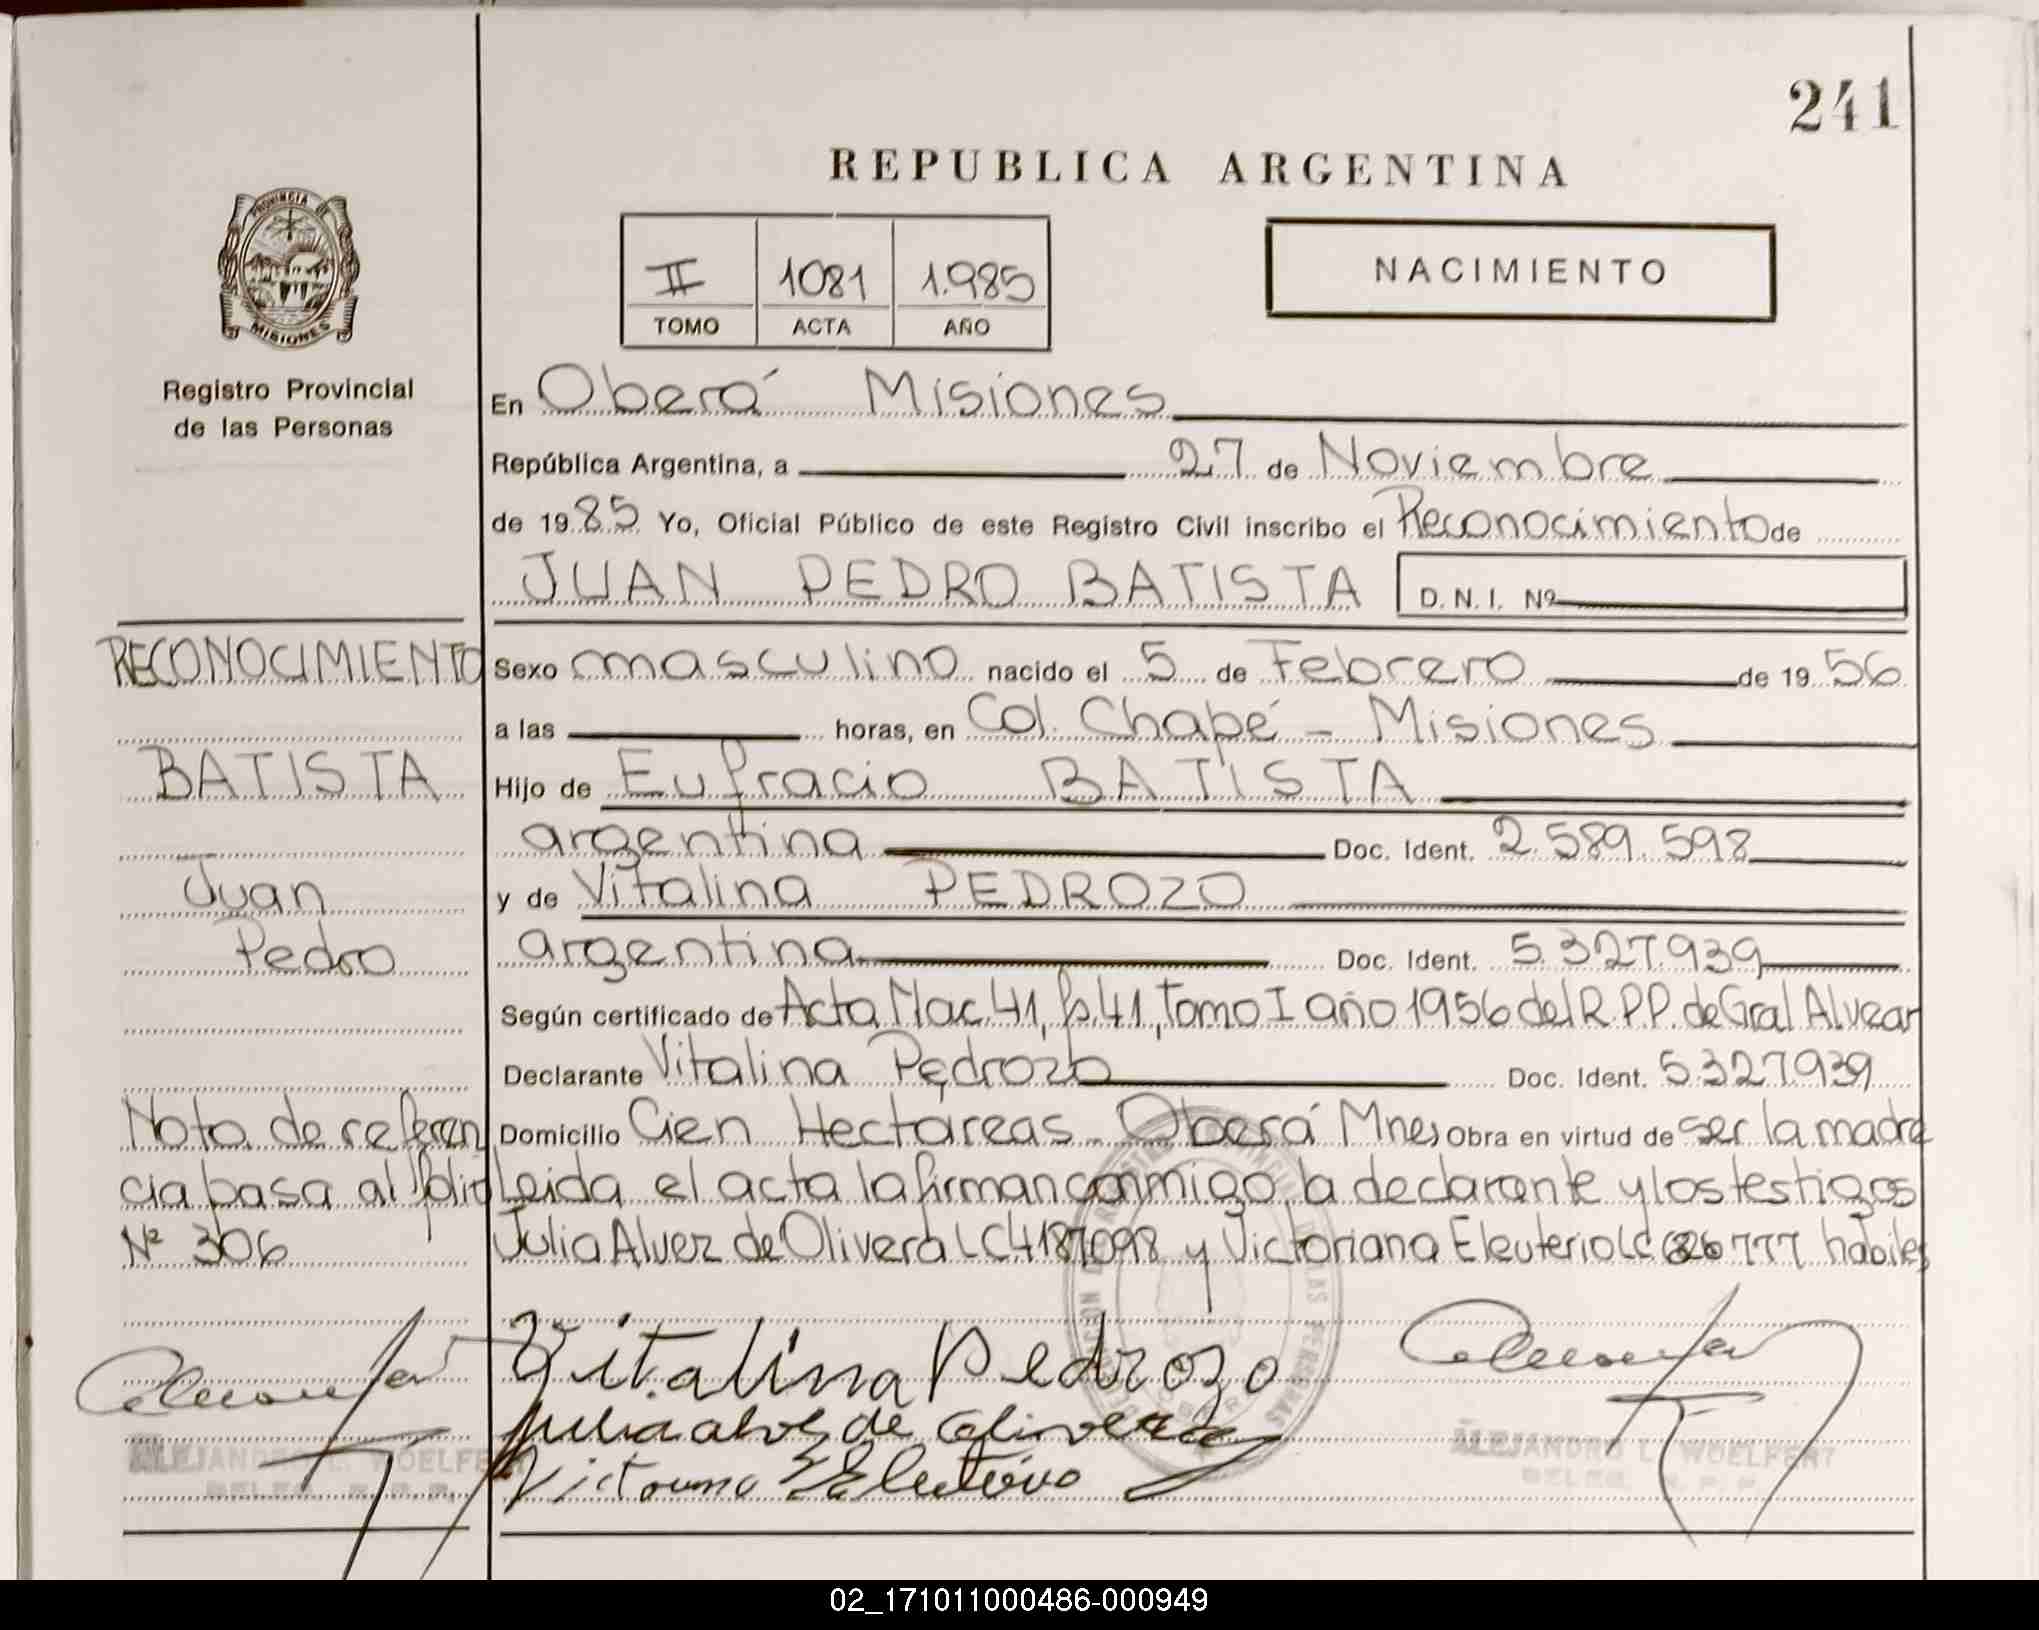 241
REPUBLICA ARGENTINA
PROVINCIA DE
MISIONES
Registro Provincial
de las Personas
II 1081 1.985
TOMO ACTA AÑO
NACIMIENTO
En Oberá Misiones
República Argentina, a 27 de Noviembre
de 1985 Yo, Oficial Público de este Registro Civil inscribo el Reconocimiento de
JUAN PEDRO BATISTA D.N.I. Nº
RECONOCIMIENTO
BATISTA
Juan
Pedro
Sexo masculino nacido el 5 de Febrero de 1956
a las horas, en Col. Chapé - Misiones
Hijo de Eufracio BATISTA
argentina Doc. Ident. 2.589.598
y de Vitalina PEDROZO
argentina Doc. Ident. 5.327.939
Según certificado de Acta Nac. 41, fo. 41, Tomo I año 1956 del R.P.P. de Gral Alvear
Declarante Vitalina Pedrozo Doc. Ident. 5.327.939
Domicilio Cien Hectareas - Oberá Mnes Obra en virtud de ser la madre
Leida el acta la firman conmigo, la declarante y los testigos
Julia Alvez de Olivera LC 4187098 y Victoriana Eleuterio LC 777 habiles
Nota de referen
cia pasa al folio
Nº 306
Vitalina Pedrozo
Julia alves de Olivera
Victoriana Eleuterio
ALEJANDRO L. WOELFERT
DELEG. R. P. P.
ALEJANDRO L. WOELFERT
DELEG. R. P. P.
02_171011000486-000949